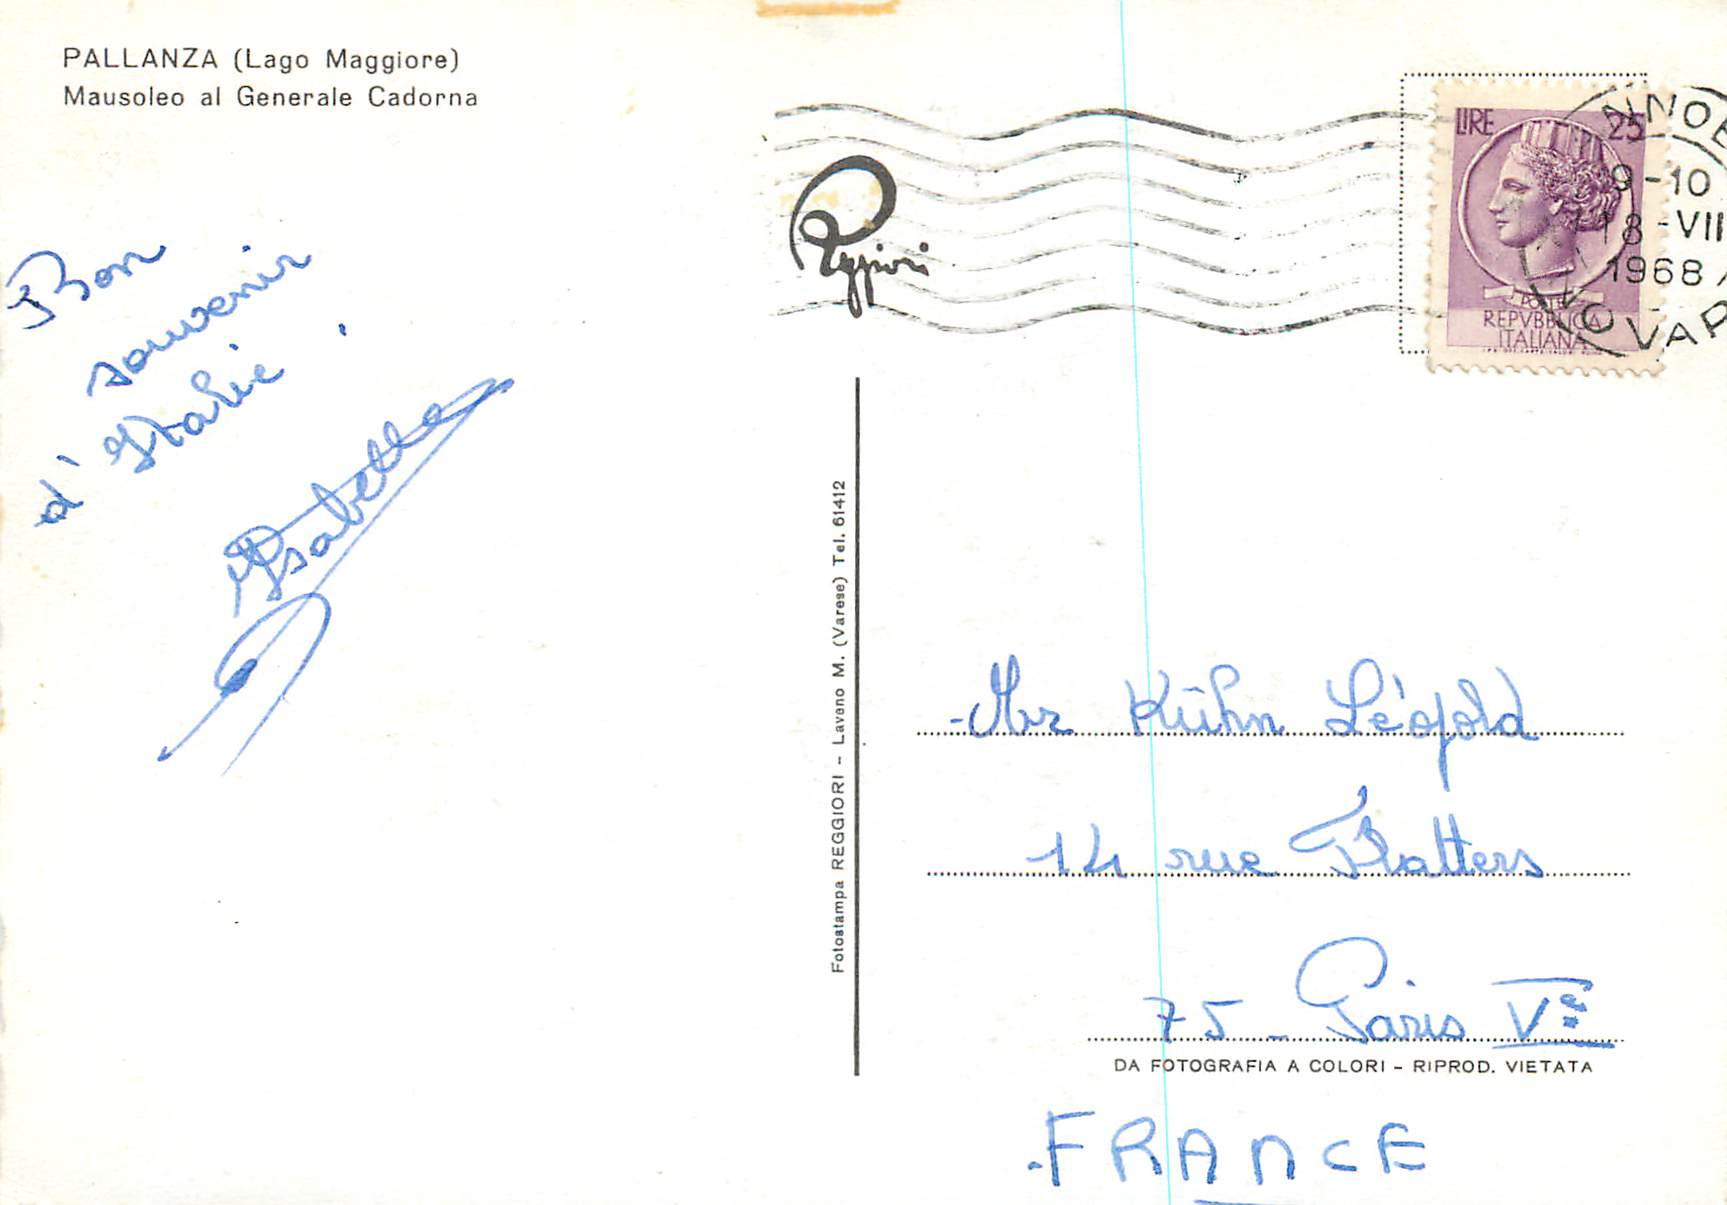 PALLANZA (Lago Maggiore)
Mausoleo al Generale Cadorna
Bon
souvenir
d'Italie !
Ysabella
Reggiori
LIRE 25
POSTE
REPVBBLICA
ITALIANA
9-10
18-VII
1968
VAR
Fotostampa REGGIORI - Laveno M. (Varese) Tel. 61412
Mr Kühn Léopold
14 rue Flatters
75 - Paris Ve
DA FOTOGRAFIA A COLORI - RIPROD. VIETATA
FRANCE